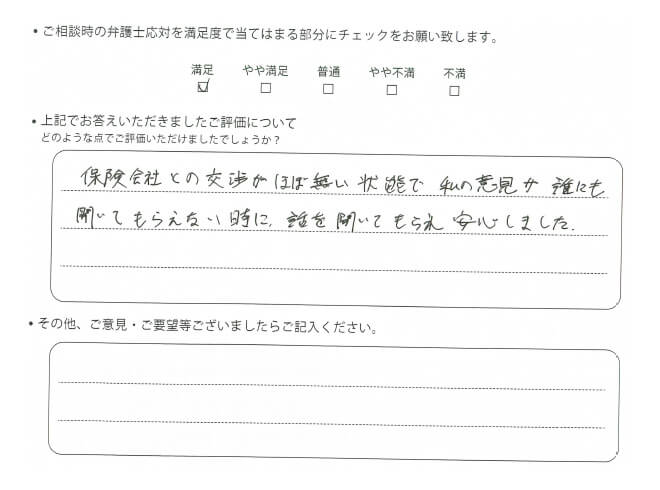 ・ご相談時の弁護士応対を満足度で当てはまる部分にチェックをお願い致します。
満足 やや満足 普通 やや不満 不満
☑ □ □ □ □
・上記でお答えいただきましたご評価について
どのような点でご評価いただけましたでしょうか？
保険会社との交渉がほぼ無い状態で 私の意見が 誰にも
聞いてもらえない時に、話を聞いてもられ 安心しました.
・その他、ご意見・ご要望等ございましたらご記入ください。